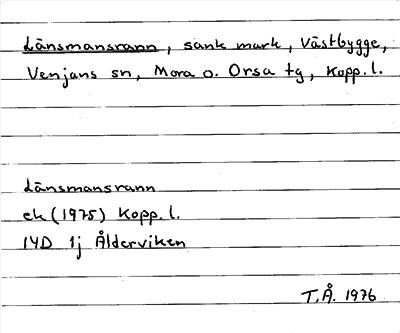 Länsmansrann, sank mark, Västbygge,
Venjans sn, Mora o. Orsa tg, Kopp. l.
Länsmansrann
ek (1975) Kopp. l.
14D 1j Ålderviken
T.Å. 1976